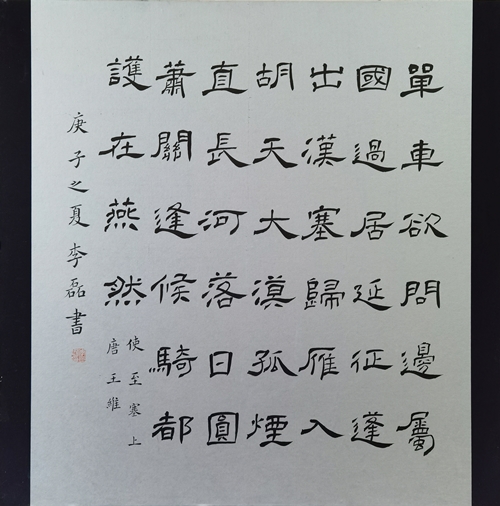 單車欲問邊屬
國過居延征蓬
出漢塞歸雁入
胡天大漠孤煙
直長河落日圓
蕭關逢候騎都
護在燕然
使至塞上
唐王維
庚子之夏李磊書